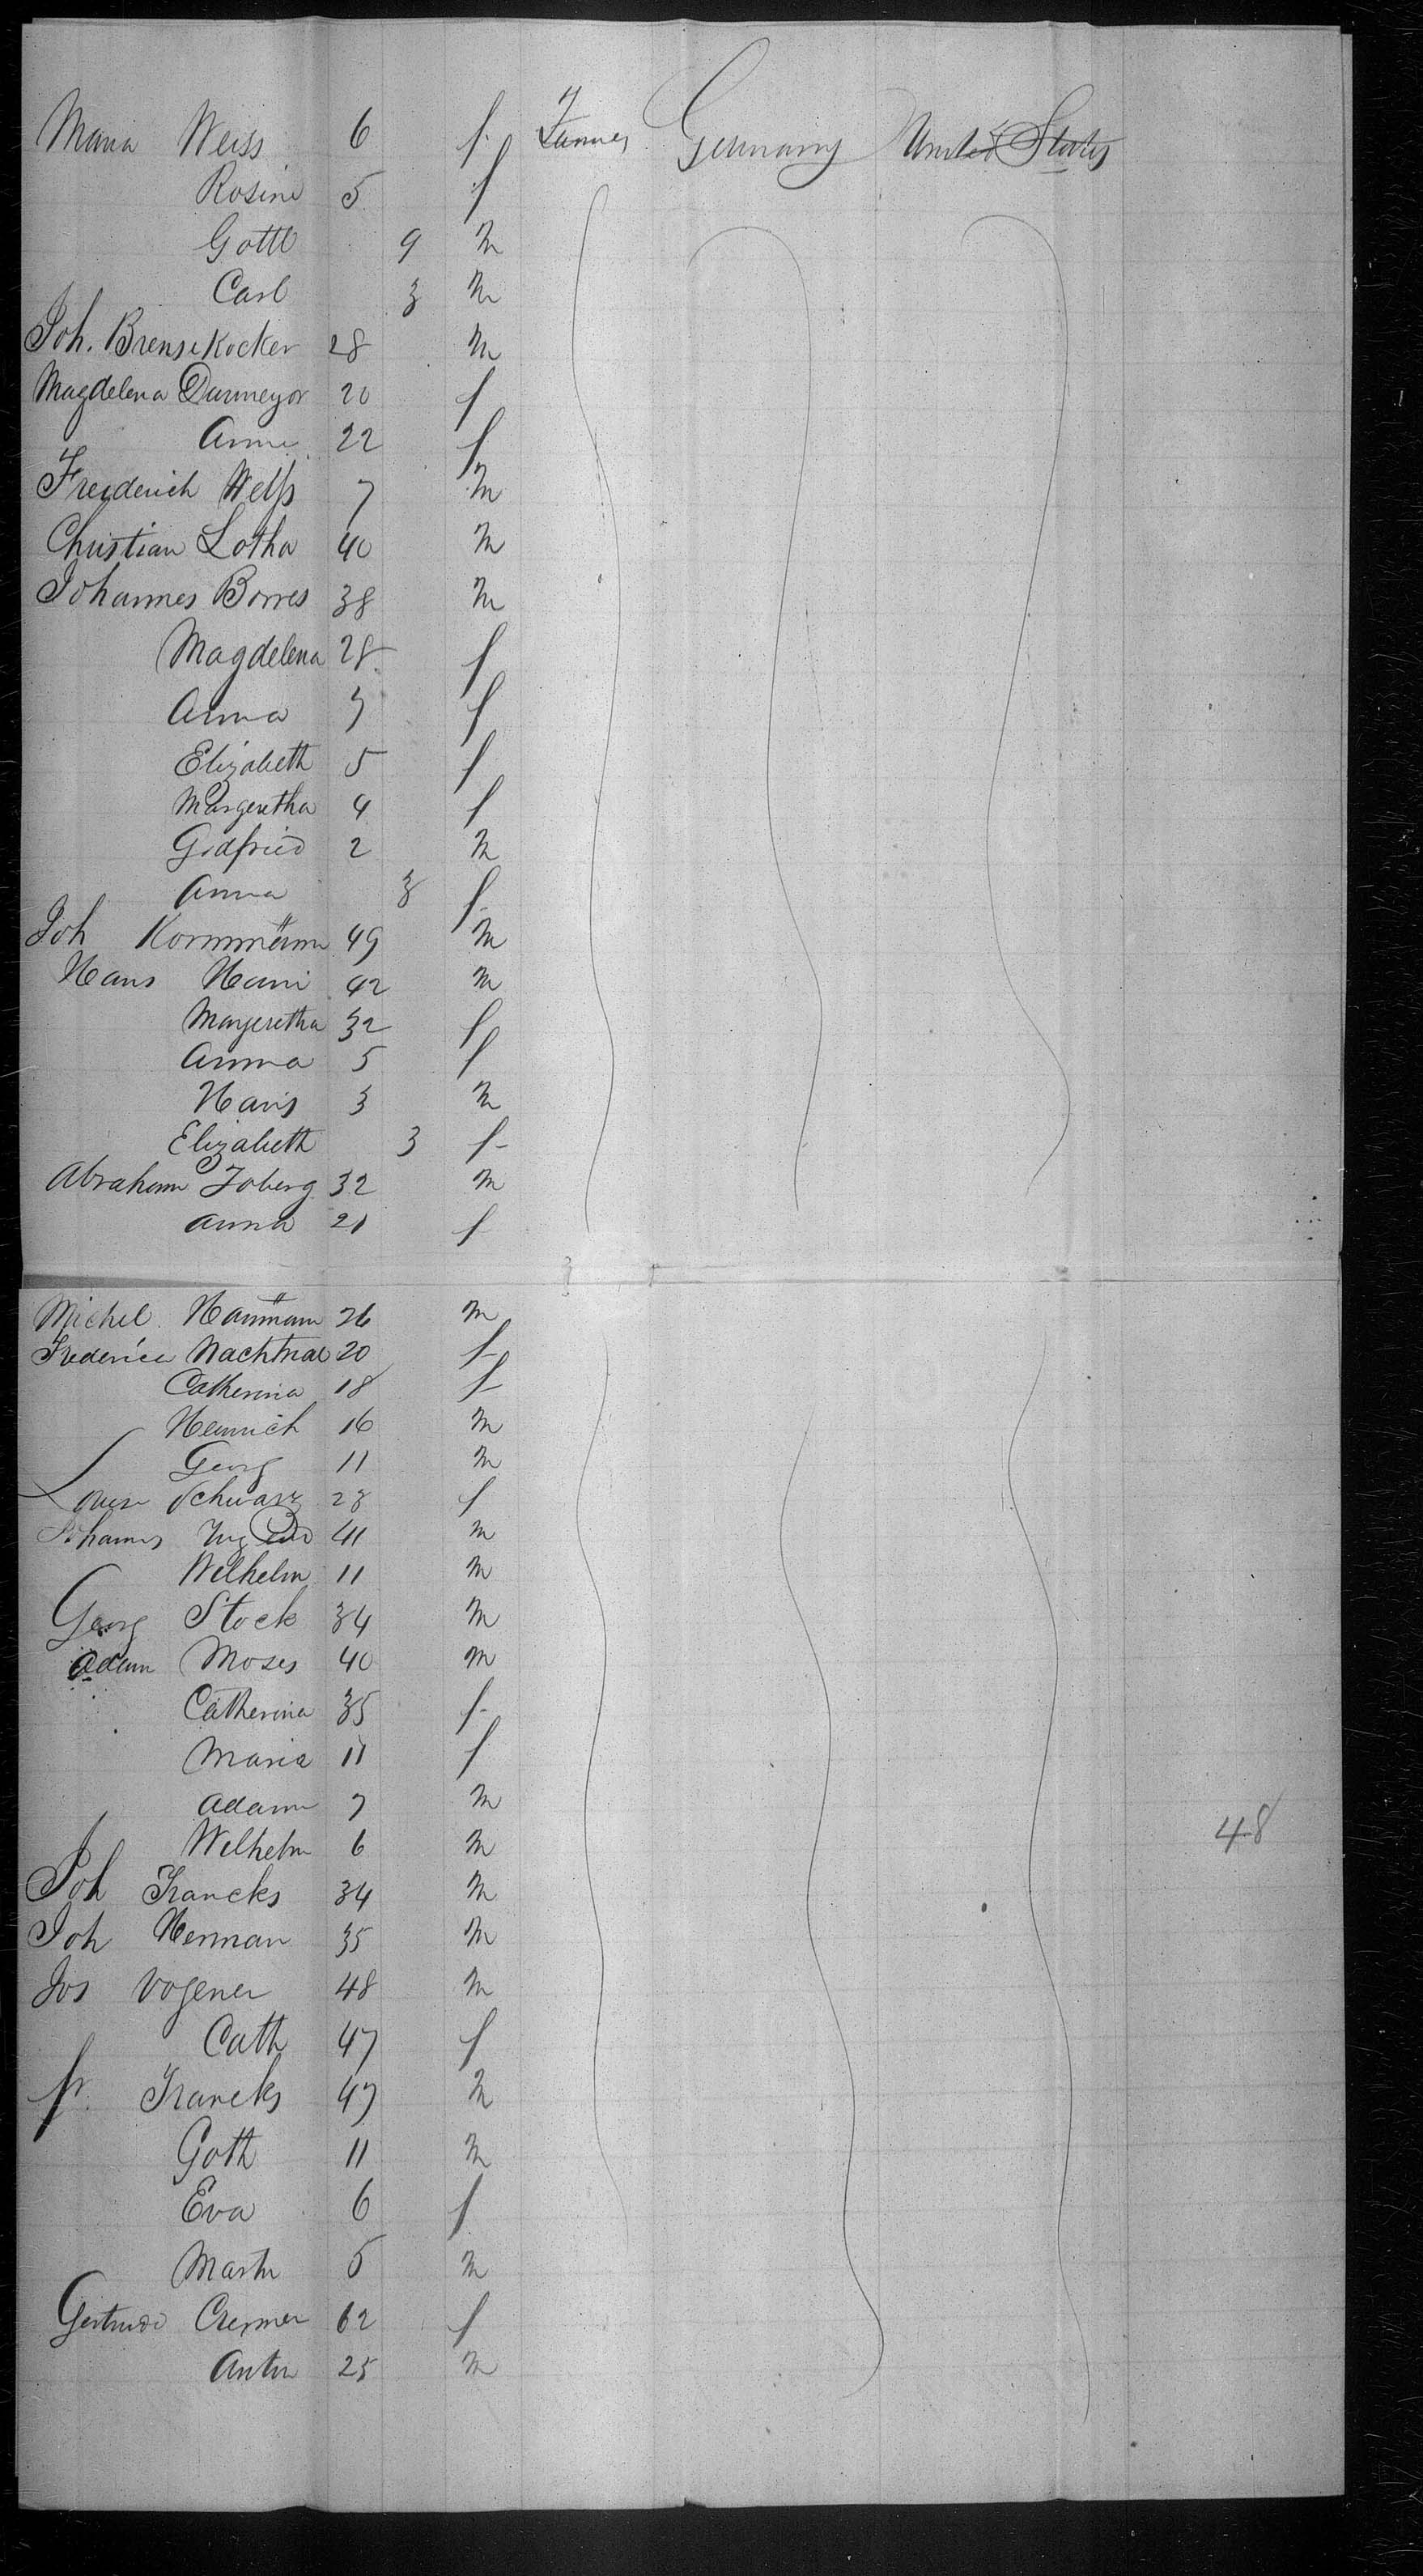 Maria Weiss 6 f. Farmer Germany United States
Rosine 5 f
Gottl 9 m
Carl 3 m
Joh. Brensikocker 28 m
Magdelena Durmeyor 20 f
Anna 22 f
Freiderich Welss 7 m
Christian Lotha 40 m
Johannes Borres 38 m
Magdelena 28 f
Anna 7 f
Elizabeth 5 f
Margeretha 4 f
Godfried 2 m
Anna 3 f
Joh Kornmann 49 m
Hans Hani 42 m
Margeretha 32 f
Anna 5 f
Hans 3 m
Elizabeth 3 f
Abraham Joberg 32 m
Anna 21 f
Michel Hanmann 26 m
Frederica Nachtnal 20 f
Catherina 18 f
Heinrich 16 m
Georg 11 m
Louise Schwarz 28 f
Johannes 41 m
Wilhelm 11 m
Georg Stock 34 m
Adam Moses 40 m
Catherina 35 f
Maria 11 f
Adam 7 m
Wilhelm 6 m 48
Joh Francks 34 m
Joh Herman 35 m
Jos Vogener 48 m
Cath 47 f
fr. Francks 47 m
Goth 11 m
Eva 6 f
Martn 5 m
Gertrude Cremer 62 f
Anton 25 m